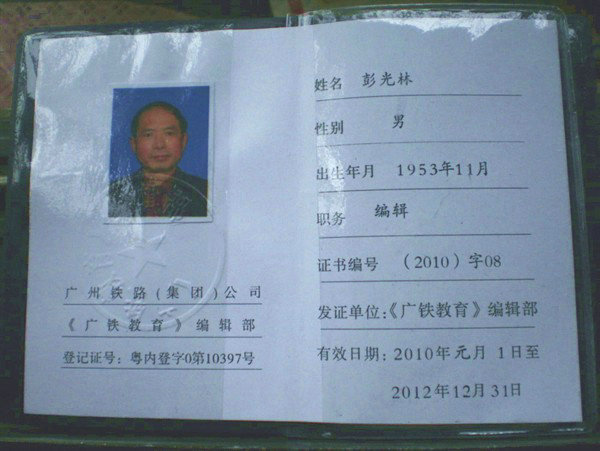 广州铁路(集团)公司
《广铁教育》编辑部
登记证号：粤内登字0第10397号
姓名 彭光林
性别 男
出生年月 1953年11月
职务 编辑
证书编号 (2010)字08
发证单位:《广铁教育》编辑部
有效日期：2010年元月1日至
2012年12月31日